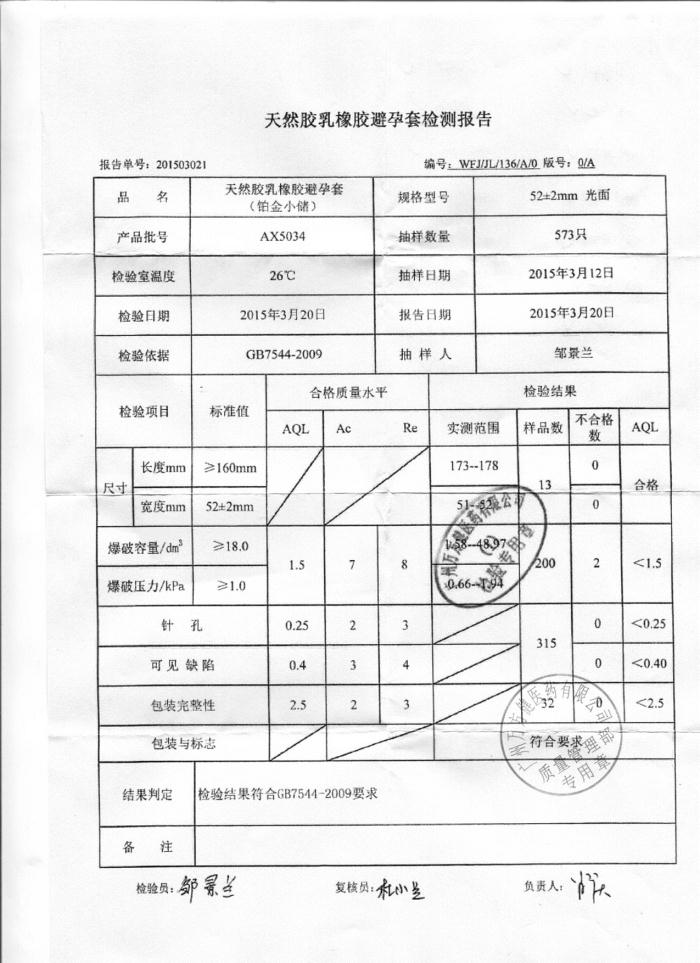 天然胶乳橡胶避孕套检测报告
报告单号：201503021 编号：WFJ/JL/136/A/0 版号：0/A
品 名 天然胶乳橡胶避孕套（铂金小储） 规格型号 52±2mm 光面
产品批号 AX5034 抽样数量 573只
检验室温度 26℃ 抽样日期 2015年3月12日
检验日期 2015年3月20日 报告日期 2015年3月20日
检验依据 GB7544-2009 抽 样 人 邹景兰
检验项目 标准值 合格质量水平 检验结果
AQL Ac Re 实测范围 样品数 不合格数 AQL
尺寸 长度mm ≥160mm 173--178 13 0 合格
宽度mm 52±2mm 0
爆破容量/dm³ ≥18.0 1.5 7 8 200 2 <1.5
爆破压力/kPa ≥1.0 0.66--1.94
针 孔 0.25 2 3 315 0 <0.25
可见缺陷 0.4 3 4 0 <0.40
包装完整性 2.5 2 3 32 0 <2.5
包装与标志 符合要求
结果判定 检验结果符合GB7544-2009要求
备 注
检验员：邹景兰 复核员：杜小兰 负责人：
广州万方健医药有限公司
检验专用章
广州万方健医药有限公司
质量管理部
专用章